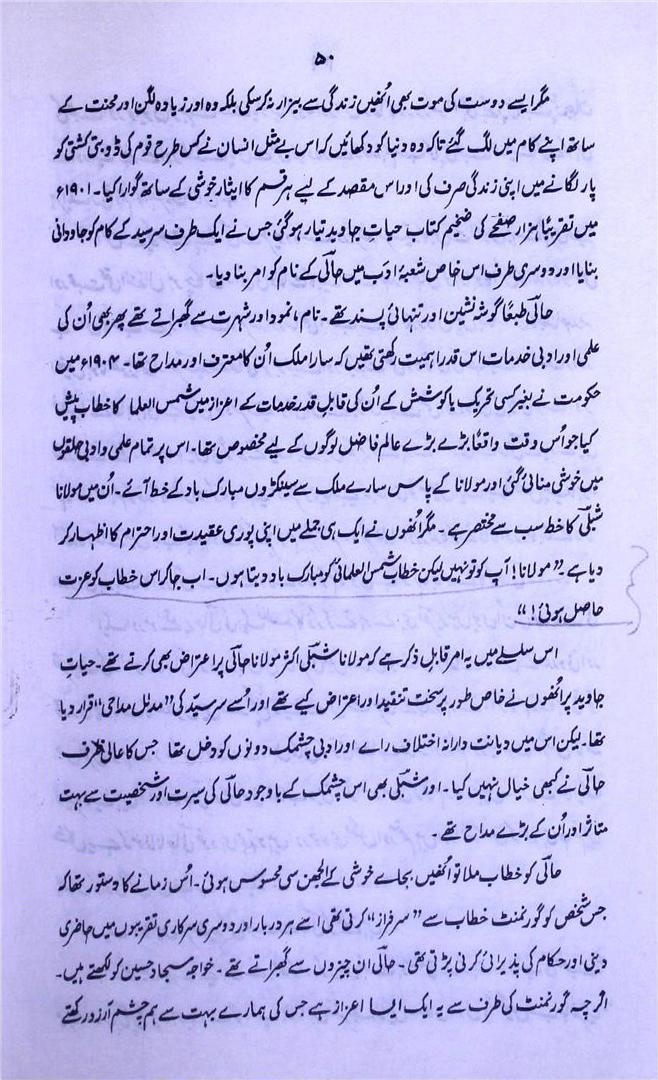 ۵۰
مگر ایسے دوست کی موت بھی اُنھیں زندگی سے بیزار نہ کر سکی بلکہ وہ اور زیادہ لگن اور محنت کے
ساتھ اپنے کام میں لگ گئے تاکہ وہ دنیا کو دکھائیں کہ اس بے مثل انسان نے کس طرح قوم کی ڈوبتی کشتی کو
پار لگانے میں اپنی زندگی صرف کی اور اس مقصد کے لیے ہر قسم کا ایثار خوشی کے ساتھ گوارا کیا۔ ۱۹۰۱ء
میں تقریباً ہزار صفحے کی ضخیم کتاب حیاتِ جاوید تیار ہو گئی جس نے ایک طرف سرسید کے کام کو جاودانی
بنایا اور دوسری طرف اس خاص شعبۂ ادب میں حالیؔ کے نام کو امر بنا دیا۔
حالیؔ طبعاً گوشہ نشین اور تنہائی پسند تھے۔ نام، نمود اور شہرت سے گھبراتے تھے پھر بھی اُن کی
علمی اور ادبی خدمات اس قدر اہمیت رکھتی تھیں کہ سارا ملک اُن کا معترف اور مداح تھا۔ ۱۹۰۴ء میں
حکومت نے بغیر کسی تحریک یا کوشش کے اُن کی قابلِ قدر خدمات کے اعزاز میں شمس العلما کا خطاب پیش
کیا جو اُس وقت واقعاً بڑے بڑے عالم فاضل لوگوں کے لیے مخصوص تھا۔ اس پر تمام علمی و ادبی حلقوں
میں خوشی منائی گئی اور مولانا کے پاس سارے ملک سے سینکڑوں مبارک باد کے خط آئے۔ اُن میں مولانا
شبلیؔ کا خط سب سے مختصر ہے۔ مگر اُنھوں نے ایک ہی جملے میں اپنی پوری عقیدت اور احترام کا اظہار کر
دیا ہے۔ ”مولانا! آپ کو تو نہیں لیکن خطاب شمس العلمائی کو مبارک باد دیتا ہوں۔ اب جا کر اس خطاب کو عزت
حاصل ہوئی!“
اس سلسلے میں یہ امر قابلِ ذکر ہے کہ مولانا شبلیؔ اکثر مولانا حالیؔ پر اعتراض بھی کرتے تھے۔ حیاتِ
جاوید پر اُنھوں نے خاص طور پر سخت تنقید اور اعتراض کیے تھے اور اُسے سرسیّد کی ”مدلل مداحی“ قرار دیا
تھا۔ لیکن اس میں دیانت دارانہ اختلافِ رائے اور ادبی چشمک دونوں کو دخل تھا جس کا عالی ظرف
حالیؔ نے کبھی خیال نہیں کیا۔ اور شبلیؔ بھی اس چشمک کے باوجود حالیؔ کی سیرت اور شخصیت سے بہت
متاثر اور اُن کے بڑے مداح تھے۔
حالیؔ کو خطاب ملا تو اُنھیں بجائے خوشی کے اُلجھن سی محسوس ہوئی۔ اُس زمانے کا دستور تھا کہ
جس شخص کو گورنمنٹ خطاب سے ”سرفراز“ کرتی تھی اسے ہر دربار اور دوسری سرکاری تقریبوں میں حاضری
دینی اور حکام کی پذیرائی کرنی پڑتی تھی۔ حالیؔ ان چیزوں سے گھبراتے تھے۔ خواجہ سجاد حسین کو لکھتے ہیں۔
اگرچہ گورنمنٹ کی طرف سے یہ ایک ایسا اعزاز ہے جس کی ہمارے بہت سے ہم چشم آرزو رکھتے